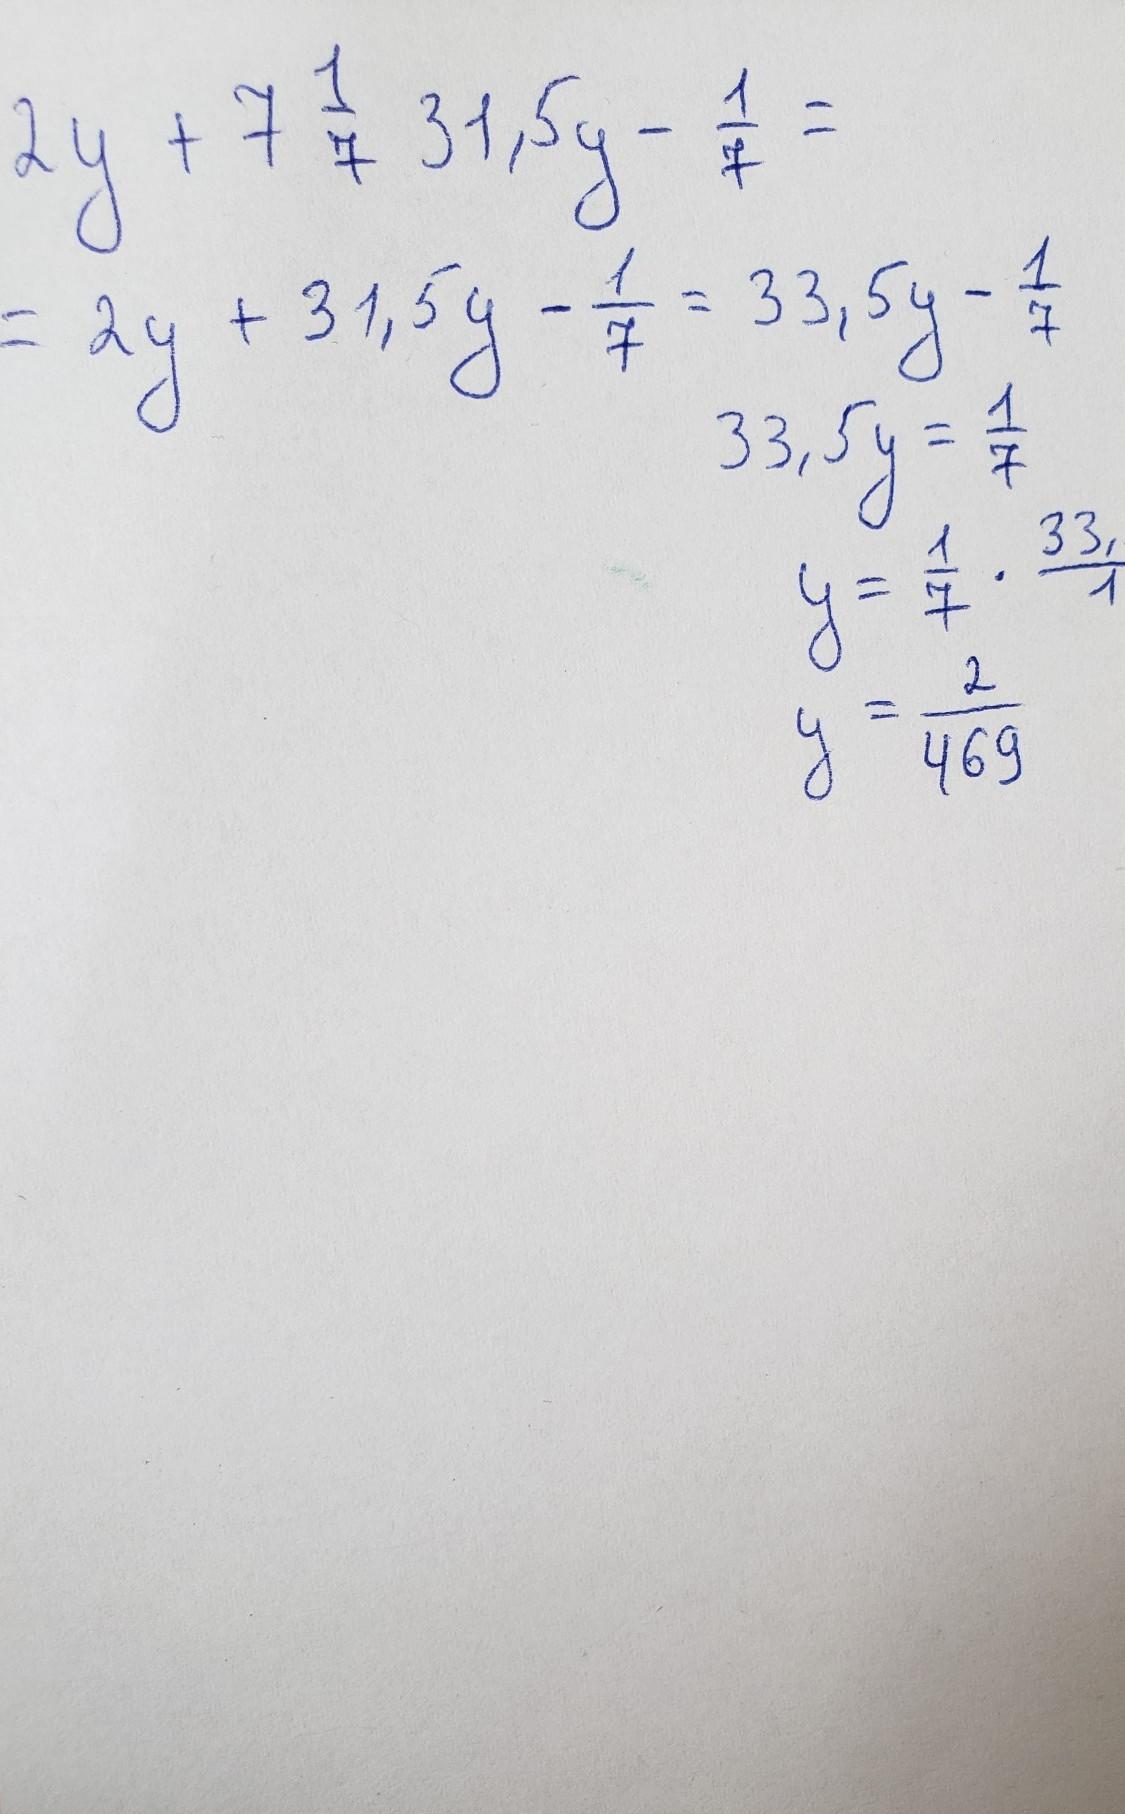 2y + 7 1/7 31,5y - 1/7 =
= 2y + 31,5y - 1/7 = 33,5y - 1/7
33,5y = 1/7
y = 1/7 · 33,/1
y = 2/469